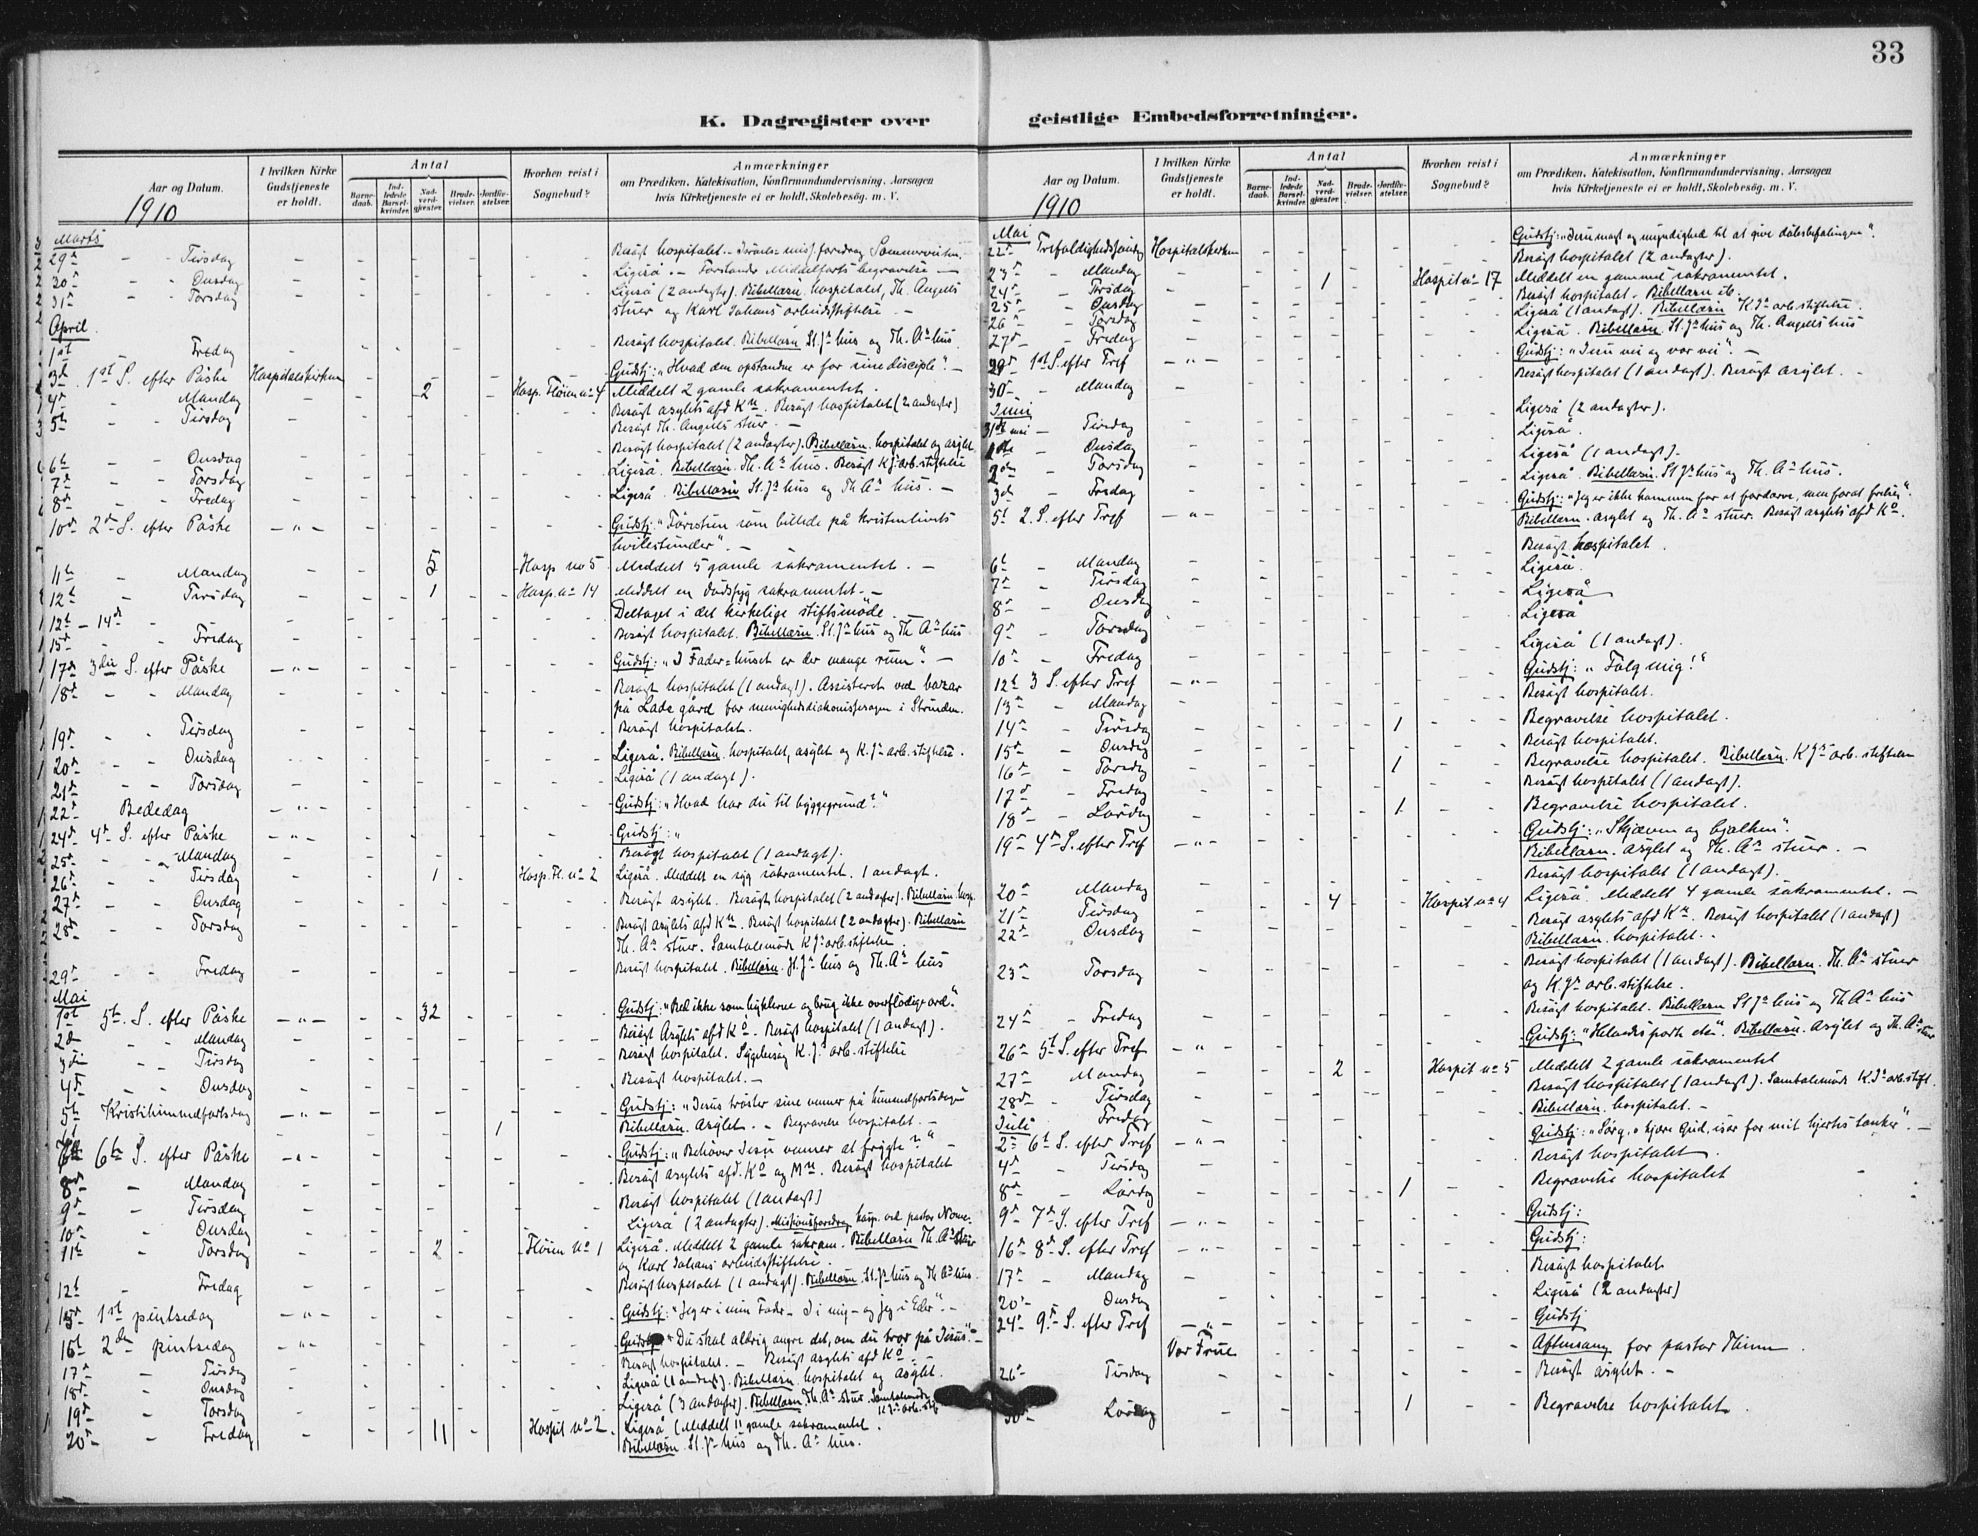 33
K. Dagregister over
geistlige Embedsforretninger.
Aar og Datum.
1910
I hvilken Kirke Gudstjeneste er holdt.
Antal
Barne-daab.
Ind-ledede Barsel-kvinder.
Nad-verd-gjæster.
Brude-vielser.
Jordfæ-stelser.
Hvorhen reist i Sognebud?
Anmærkninger
om Prædiken, Katekisation, Konfirmandundervisning, Aarsagen
hvis Kirketjeneste ei er holdt, Skolebesøg. m. V.
Marts
29de - - Tirsdag Besøgt hospitalet.
30 - - Onsdag Ligeså. - Forstander Middelfarts begravelse -
31te - - Torsdag Ligeså (2 andagter). Bibellæsn. hospitalet, Th. Angells
stuer og Karl Johans arbeidsstiftelse. -
April
1st Fredag Besøgt hospitalet. Bibellæsn St. Jns hus og Th. As hus
3d 1st S. efter Påske Hospitalskirken Gudstj: "Hvad den opstandne er for sine disciple". -
4d - - Mandag 2 Hosp. Fløien no 4 Meddelt 2 gamle sakramentet.
Besøgt asylets afd Kn. Besøgt hospitalet (2 andagter)
5th - - Tirsdag Besøgt Th. Angells stuer. -
6th - - Onsdag Besøgt hospitalet (2 andagter). Bibellæsn. hospitalet og asylet
7d - - Torsdag Ligeså. Bibellæsn. Th. As hus. Besøgt K J. arb. stiftelse
8d - - Fredag Ligeså. Bibellæsn St. Js hus og Th. As hus. -
10d 2d S. efter Påske - " - Gudstj: " som billede på kristenlivets
hvilestunder". -
11th - Mandag 5 Hosp no 5 Meddelt 5 gamle sakramentet. -
12th - Tirsdag 1 Hosp. no 14 Meddelt en dødssyg sakramentet. -
12th - 14d Deltaget i det kirkelige stiftsmøde.
15d Fredag Besøgt hospitalet. Bibellæsn. St. Js hus og Th. As hus
17d 3die S. efter Påske - " - Gudstj: "I Faderhuset er der mange rum". -
18d - - Mandag Besøgt hospitalet (1 andagt). Assisteret ved bazar
på Lade gård for menighedsdiakonissesagen i Strinden.
19d - - Tirsdag Besøgt hospitalet.
20d - - Onsdag Ligeså. Bibellæsn. hospitalet, asylet og K. Js arb. stiftelse.
21d - - Torsdag Ligeså (1 andagt).
22d Bededag - " - Gudstj: "Hvad har du til byggegrund?"
24d 4d S. efter Påske - " - Gudstj: "
25d - Mandag Besøgt hospitalet (1 andagt).
26d - - Tirsdag 1 Hosp. Fl. no 2 Ligeså. Meddelt en syg sakramentet. 1 andagt.
27d - - Onsdag Besøgt asylet. Besøgt hospitalet (2 andagter). Bibellæsn. hosp.
28d - - Torsdag Besøgt asylets afd Kn. Besøgt hospitalet (2 andagter). Bibellæsn
Th. As stuer. Samtalemøde K J. arb. stiftelse.
29d - - Fredag Besøgt hospitalet. Bibellæsn. St. Js hus og Th. As hus
Mai
1st 5th S. efter Påske - " - 32 Gudstj: "Bed ikke som hyklerne og brug ikke overflødige ord."
2d - - Mandag Besøgt Asylets afd Ko. Besøgt hospitalet (1 andagt).
3die - - Tirsdag Besøgt hospitalet. Sygebesøg K. J. arb. stiftelse
4d - - Onsdag Besøgt hospitalet. -
5th Kristihimmelfartsdag - " - Gudstj: "Jesus trøster sine venner på himmelfartsdagen"
1 Bibellæsn. Asylet. - Begravelse hospitalet. -
6th S. efter Påske - " - Gudstj: "Behøver Jesu venner at frygte?" -
Besøgt asylets afd. Ko og Mn. Besøgt hospitalet
8d - Mandag Besøgt hospitalet (1 andagt)
9d - Tirsdag Ligeså (2 andagter). Missionsforedrag hosp. ved pastor
10d - Onsdag
11th - Torsdag 2 Fløien No 1 Ligeså. Meddelt 2 gamle sakram. Bibellæsn Th. As stuer
og Karl Johans arbeidsstiftelse.
12th - Fredag Besøgt hospitalet (1 andagt). Bibellæsn. St. Js hus og Th As hus.
15d 1st pintsedag - " - Gudstj: "Jeg er i min Fader - I i mig - og jeg i Eder". -
16th 2den pintsedag - " - Gudstj "Du skal aldrig angre det, om du tror på Jesus". -
17d - Tirsdag Besøgt hospitalet. - Besøgt asylets afd Ko. -
18d - Onsdag Ligeså (1 andagt). Bibellæsn. hospitalet og Asylet.
19d - Torsdag Ligeså (3 andagter). Bibellæsn. Th. As stuer. Samtalemøde
K Js arb. stif
20d - Fredag 11 Hospit no 2 Ligeså (Meddelt 11 gamle sakramentet.
Bibellæsn. St. Js hus og Th. As hus.
Aar og Datum.
1910
I hvilken Kirke Gudstjeneste er holdt.
Antal
Barne-daab.
Ind-ledede Barsel-kvinder.
Nad-verd-gjæster.
Brude-vielser.
Jordfæ-stelser.
Hvorhen reist i Sognebud?
Anmærkninger
om Prædiken, Katekisation, Konfirmandundervisning, Aarsagen
hvis Kirketjeneste ei er holdt. Skolebesøg. m. V.
Mai
22d Trefoldighedssøndag Hospitalskirken Gudstj: "Jesu magt og myndighed til at give dåbsbefalingen".
23d - Mandag Besøgt hospitalet (2 andagter).
24d - Tirsdag 1 Hospit no 17 Meddelt en gammel sakramentet.
25d - Onsdag Besøgt hospitalet. Bibellæsn ib.
26d - Torsdag Ligeså (1 andagt). Bibellæsn K Js arb. stiftelse.
27d - Fredag Ligeså. Bibellæsn. St. Js hus og Th. Angells hus
29d 1st S. efter Tref - " - Gudstj: "Jesu vei og vor vei". -
30d - Mandag Besøgt hospitalet (1 andagt). Besøgt asylet. -
Juni
31te mai - Tirsdag Ligeså (2 andagter).
1ste Onsdag Ligeså.
2den - Torsdag Ligeså (1 andagt).
3d - Fredag Ligeså. Bibellæsn. St Js hus og Th. As hus.
5t 2. S. efter Tref - " - Gudstj: "Jeg er ikke kommen for at fordærve, men for at frelse".
Bibellæsn. asylet og Th. As stuer. Besøgt asylets afd Ko.
6t - Mandag Besøgt hospitalet.
7d - Tirsdag Ligeså.
8d - Onsdag Ligeså
9d - Torsdag Ligeså
10d - Fredag Ligeså (1 andagt).
12t 3 S. efter Tref - " - Gudstj: "Følg mig!"
13d - Mandag Besøgt hospitalet.
14d - Tirsdag 1 Begravelse hospitalet.
15d - Onsdag Besøgt hospitalet.
16d - Torsdag 1 Begravelse hospitalet. Bibellæsn. K Js arb. stiftelsen
17d - Fredag Besøgt hospitalet (1 andagt).
18d - Lørdag 1 Begravelse hospitalet.
19d 4d S. efter Tref - " - Gudstj: "Skjæven og bjælken".
Bibellæsn. Asylet og Th. As stuer. -
20d Mandag Besøgt hospitalet (1 andagt).
21d Tirsdag 4 Hospit no 4 Ligeså. Meddelt 4 gamle sakramentet. -
22d Onsdag Besøgt asylets afd Kn. Besøgt hospitalet (1 andagt)
Bibellæsn. hospitalet. -
23d Torsdag Besøgt hospitalet (1 andagt). Bibellæsn. Th. As stuer
og K. Js arb. stiftelse.
24d - Fredag Besøgt hospitalet. Bibellæsn St Js hus og Th As hus
26d 5t S. efter Tref - " - Gudstj: Bibellæsn. Asylet og Th. As stuer
27d - Mandag 2 Hospit no 5 Meddelt 2 gamle sakramentet
28d - Tirsdag Besøgt hospitalet (1 andagt). Samtalemøde K Js arb. stift.
Juli Fredag Bibellæsn. hospitalet. -
2d 6t S. efter Tref - " - Gudstj: "Sørg, o kjære Gud, især for mit hjertes tanker". -
4d - Tirsdag Besøgt hospitalet.
8d - Lørdag 1 Begravelse hospitalet
9d 7d S. efter Tref - " - Gudstj:
16d 8d S. efter Tref - " - Gudstj:
17d - Mandag - Besøgt hospitalet
20d - Onsdag Ligeså (2 andagter)
24d 9d S. efter Tref - " - Gudstj
Vor Frue Aftensang for pastor
26d Tirsdag Besøgt asylet. -
30d Lørdag 1 Begravelse hospitalet.